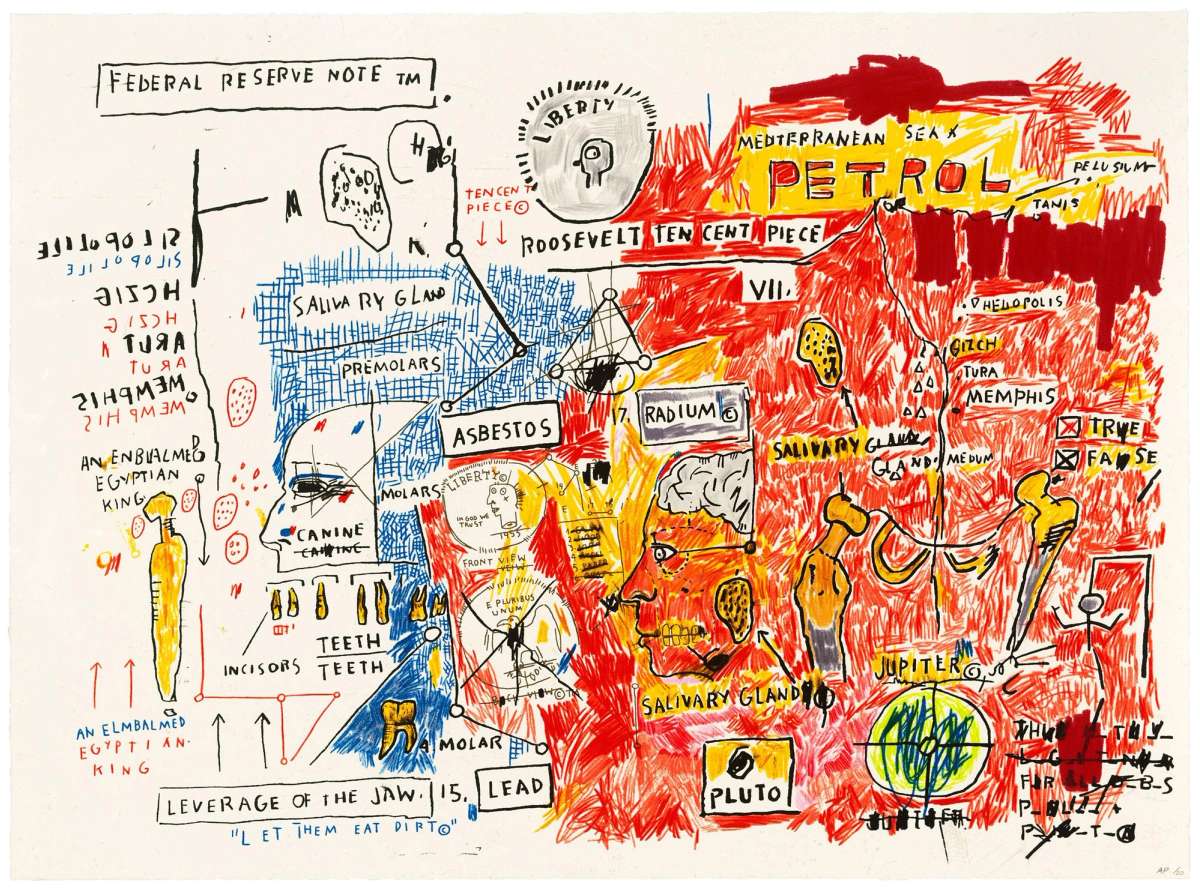 FEDERAL RESERVE NOTE TM
LIBERTY
TEN CENT
PIECE©
ROOSEVELT TEN CENT PIECE
VII.
MEDTERRANEAN SEA
PETROL
PELUSIUM
TANIS
HELIOPOLIS
GIZCH
TURA
MEMPHIS
MEDUM
TRUE
FALSE
SILOPOLILE
SILOPOLILE
HCZIG
HCZIG
ARUT
ARUT
MEMPHIS
MEMPHIS
AN ENBLALMED
EGYPTIAN
KING
SALIVARY GLAND
PREMOLARS
ASBESTOS
17.
RADIUM©
MOLARS
CANINE
CANINE
LIBERTY©
IN GOD WE
TRUST
1955
FRONT VIEW
VEIW
E PLURIBUS
UNUM
INCISORS
TEETH
TEETH
SALIVARY GLAND
GLAND
SALIVARY GLAND
JUPITER©
AN ELMBALMED
EGYPTIAN
KING
MOLAR
LEVERAGE OF THE JAW.
15.
LEAD
"LET THEM EAT DIRT©"
PLUTO
JUPITER
AP